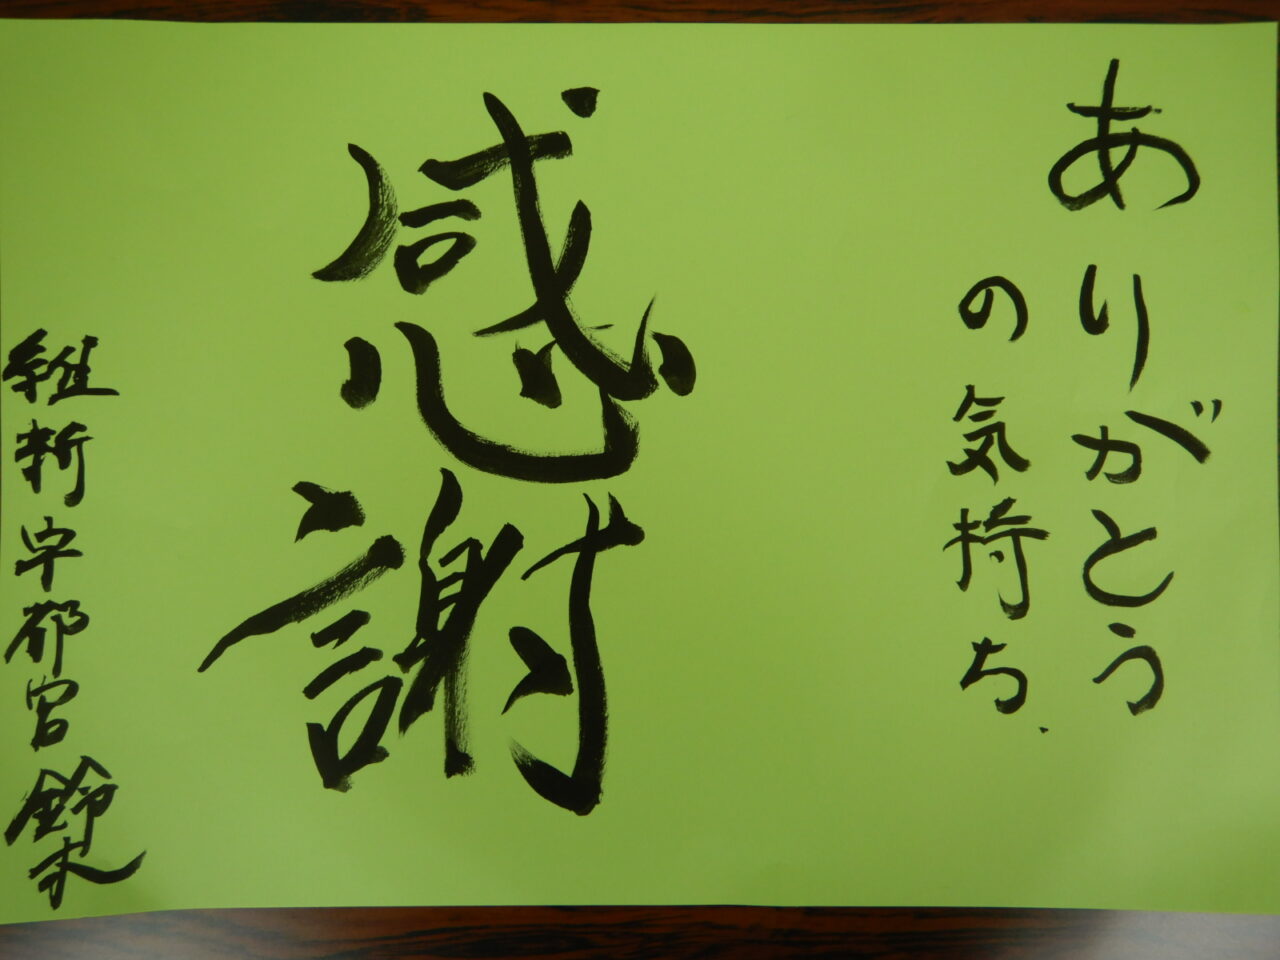 ありがとう
の気持ち
感謝
維新宇都宮 鈴木